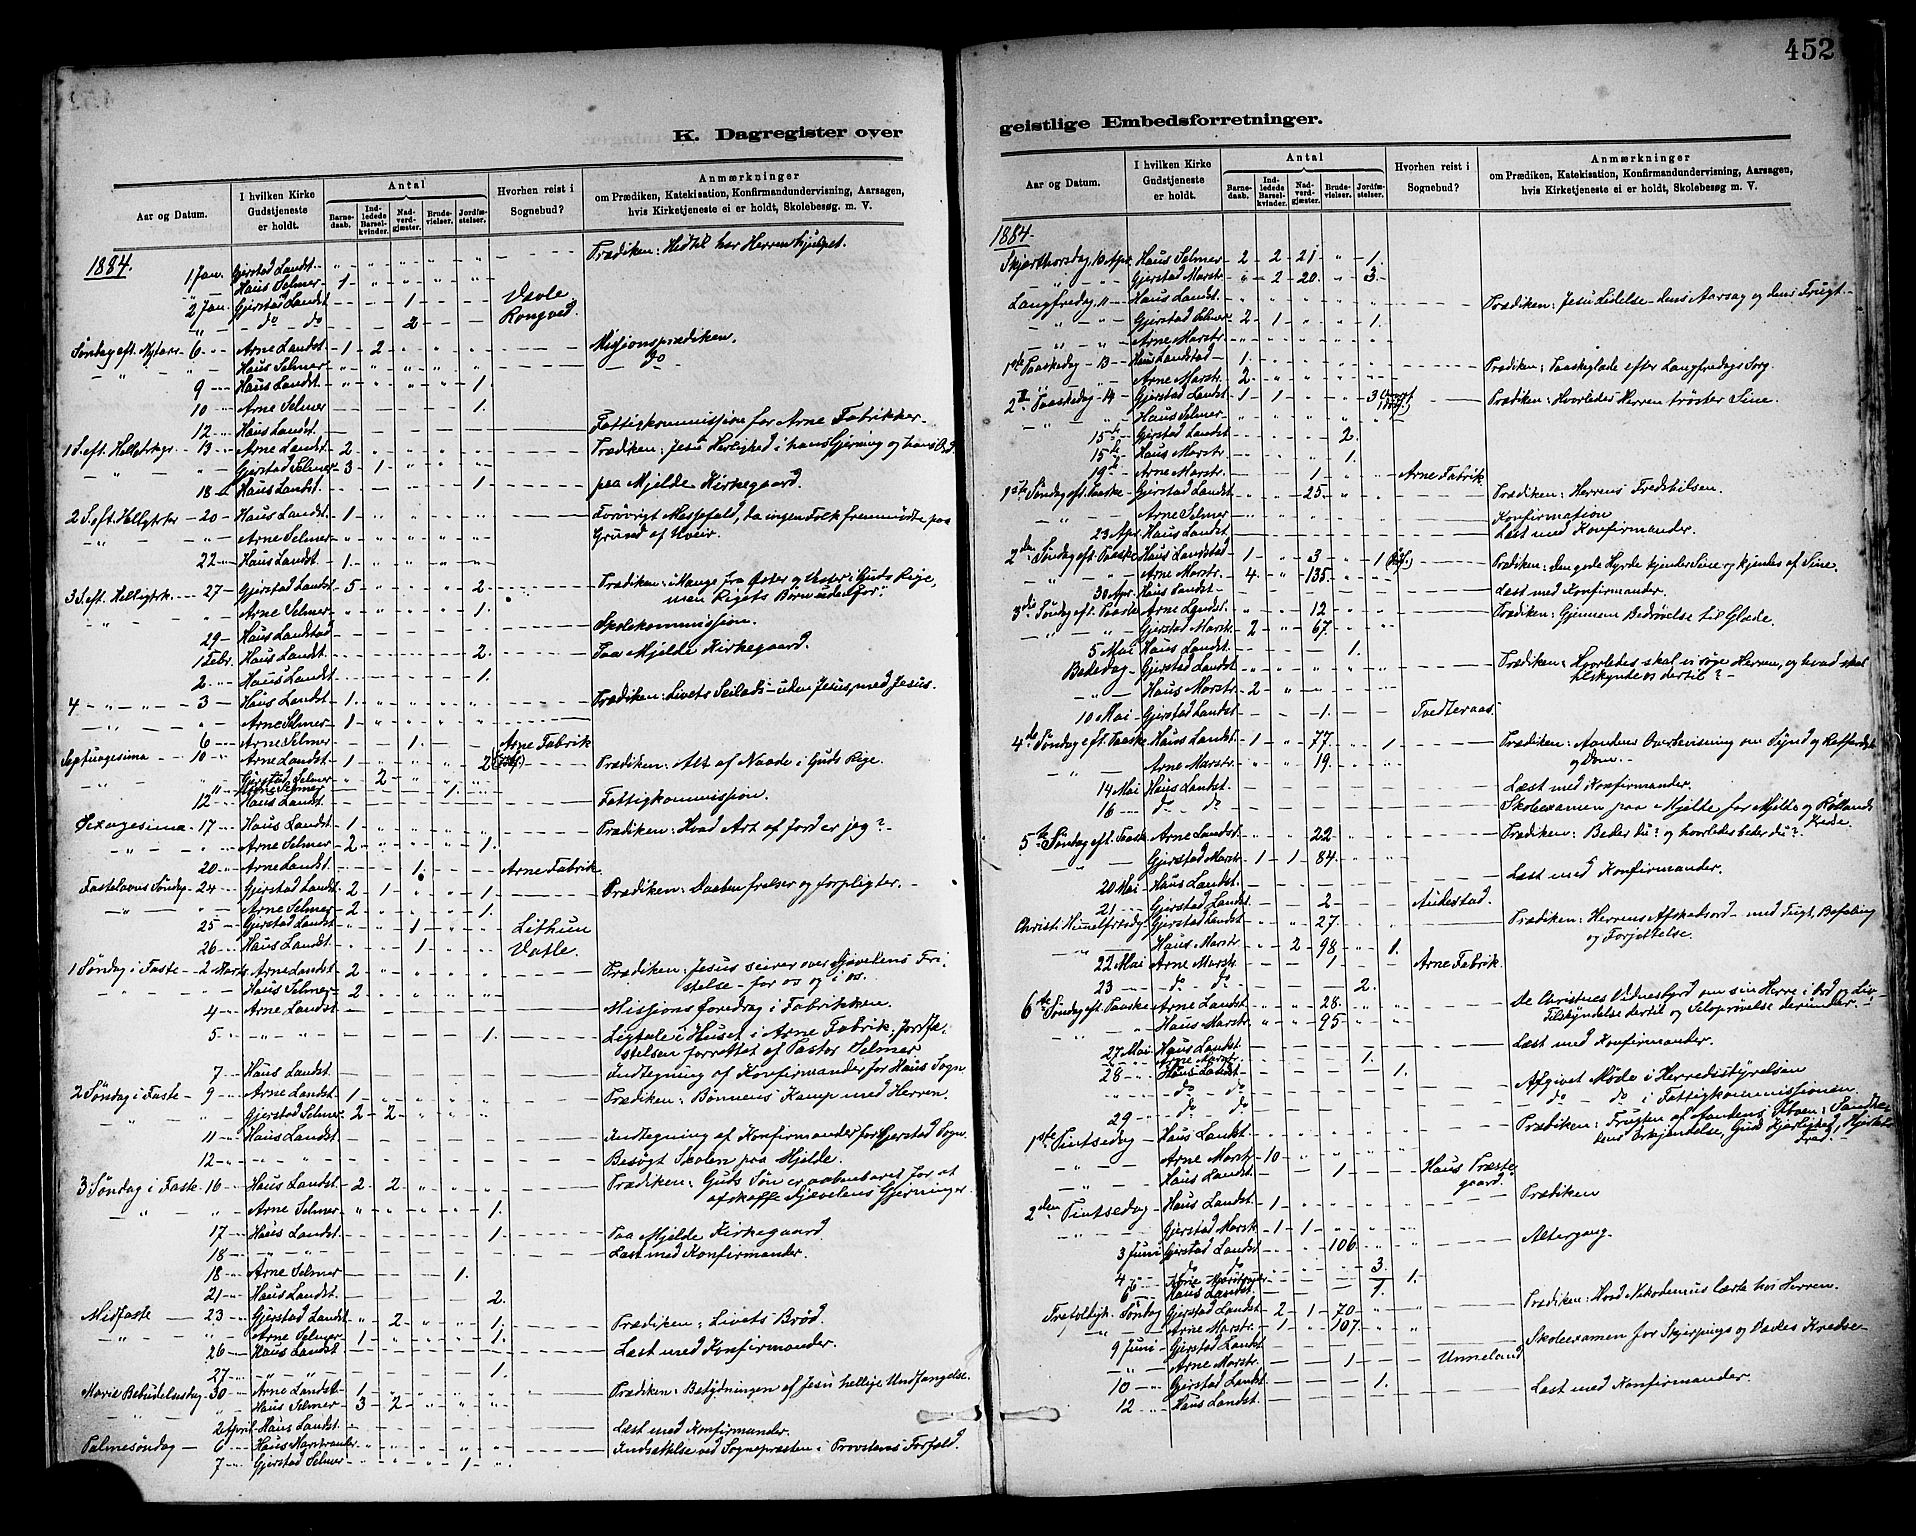 452
K. Dagregister over
Aar og Datum.
I hvilken Kirke Gudstjeneste er holdt.
Antal
Barne-daab.
Ind-ledede Barsel-kvinder.
Nad-verd-gjæster.
Brude-vielser.
Jordfæ-stelser.
Hvorhen reist i Sognebud?
Anmærkninger
om Prædiken, Katekisation, Konfirmandundervisning, Aarsagen,
hvis Kirketjeneste ei er holdt, Skolebesøg. m. V.
1884.
1 Jan. Gjerstad Landst. Prædiken: Hidtil har Herren hjulpet.
" " Haus Selmer 1
2 Jan. Gjerstad Landst 1 Vavle
" do do 2 Rongved
Søndag eft. Nytaar 6 Arne Landst. 1 2 Missionsprædiken.
" Haus Selmer do
9 Haus Landst. 1.
10 Arne Selmer 1.
12 Haus Landst. Fattigkommissione for Arne Fabrikker
1 S. eft. Helletrkgr 13 Arne Landst. 2 Prædiken: Jesu Herlighed i hans Gjerning og hans Ord
" Gjerstad Selmer 3 1
18 Haus Landst. 1 paa Mjelde Kirkegaard.
2 S. eft. Hellgtrkr 20 Haus Landst. 1 Forøvrigt Messefald, da ingen Folk fremmødte paa
" Arne Selmer Grund af Uveir.
22 Haus Landst. 1.
3 S. eft. Helligtrk. 27 Gjerstad Landst 5 2 Prædiken: "Mange fra Øster og Vester i Guds Rige,
men Rigets Børn udenfor."
" Arne Selmer 1.
29 Haus Landstad Skolekommission.
1 Febr. Haus Landst. 2. Paa Mjelde Kirkegaard.
2 Haus Landst. 1.
4 " " 3 Haus Landst 1 Prædiken: Livets Seilads - uden Jesus, med Jesus.
" Arne Selmer 1
6 Arne Selmer 1. Arne Fabrik
Septuagesima 10 Arne Landst. 1 2 Prædiken: Alt af Naade i Guds Rige.
" Gjerstad Selmer 2
" Arne Selmer 1.
12 Haus Landst. Fattigkommission.
Sexagesima 17 Haus Landst. 1 Prædiken: Hvad Art af Jord er jeg?
" Arne Selmer 2 1.
20 Arne Landst. 1. Arne Fabrik.
Fastelavns Søndag 24 Gjerstad Landst. 2 1 1 Prædiken: Daaben frelser og forpligter.
" Arne Selmer 2 1.
25 Gjerstad Landst 1 Lithun
26 Haus Landst. 1 Vatle.
1 Søndag i Faste 2 Marts Arne Landst. 2 Prædiken: Jesus seirer over Djævelens Fri-
stelse - for os og i os.
" Haus Selmer 2
4 Arne Landst Missions foredrag i Fabrikken.
5 " " 1. Ligtale i Huset i Arne Fabrik. Jordfæ-
stelsen forrettet af Pastor Selmer
7 Haus Landst. Indtegning af Konfirmander for Haus Sogn
2 Søndag i Faste 9 Arne Landst. 1 Prædiken: Bønnens Kamp med Herren.
Gjerstad Selmer 2 2
11 Haus Landst. Indtegning af Konfirmander for Gjerstad Sogn.
12 " " Besøgt Skolen paa Mjelde.
3 Søndag i Faste 16 Haus Landst. 2 2 Prædiken: Guds Søn er aabenbaret for at
afskaffe Djævelens Gjerninger.
" Arne Selmer 1.
17 Haus Landst. 1. Paa Mjelde Kirkegaard
18 " " Læst med Konfirmander.
18 Arne Selmer 1.
21 Haus Landst. 2.
Midfaste 23 Gjerstad Landst 2 1. Prædiken: Livets Brød.
" Arne Selmer 1 1.
26 Haus Landst Læst med Konfirmander.
27 " " 1.
Mariæ Bebudelsesdag 30 Arne Landst 1 Prædiken: Betydningen af Jesu hellige Undfangelse.
" Haus Selmer 3 2
2 April Haus Landst. Læst med Konfirmander.
Palmesøndag 6 Haus Marstrander Indsættelse ved Sognepræsten i Provstens Forfald.
7 Gjerstad Selmer 1
geistlige Embedsforretninger.
Aar og Datum.
I hvilken Kirke Gudstjeneste er holdt.
Antal
Barne-daab.
Ind-ledede Barsel-kvinder.
Nad-verd-gjæster.
Brude-vielser.
Jordfæ-stelser.
Hvorhen reist i Sognebud?
Anmærkninger
om Prædiken, Katekisation, Konfirmandundervisning, Aarsagen,
hvis Kirketjeneste ei er holdt, Skolebesøg m. V.
1884.
Skjærthorsdag 10 Apr. Haus Selmer 2 2 21 1.
" Gjerstad Marstr. 2 20 3
Langfredag 11 Haus Landst. Prædiken: Jesu Lidelse - dens Aarsag og dens Frugt.
" Gjerstad Selmer 2 1 1.
" Arne Marstr.
1ste Paaskedag 13 Haus Landstad 1. Prædiken: Paaskeglæde efter Langfredags Sorg.
" Arne Marstr. 2
2 Paaskedag 14 Gjerstad Landst. 1 1 3 Prædiken: Hvorledes Herren trøster Sine.
" Haus Selmer
15de Gjerstad Landst 2.
15de Haus Marstr. 1.
19de Arne Marstr. 1 Arne Fabrik
1ste Søndag eft. Paaske Gjerstad Landst 25 Prædiken: Herrens Fredshilsen.
" Arne Selmer Konfirmation
23 Apr. Haus Landst Læst med Konfirmander.
2den Søndag eft. Paaske Haus Landstad 1 3 1 Prædiken: den gode Hyrde kjender Sine og kjendes af Sine.
" Arne Marstr. 4 135
30 Apr. Haus Landst Læst med Konfirmander.
3die Søndag eft. Paaske Arne Landst. 12 Prædiken: Gjennem Bedrøvelse til Glæde.
" Gjerstad Marstr. 2 67.
5 Mai Haus Landst. 1.
Bededag Gjerstad Landst. Prædiken: Hvorledes skal vi søge Herren, og hvad skal
tilskynde os dertil?
" Haus Marstr. 2
10 Mai Gjerstad Landst 1. Tvedteraas.
4de Søndag eft. Paaske Haus Landst. 1 77 1 Prædiken: Aandens Overbevisning om Synd og Retfærdighed
og Dom.
" Arne Marstr. 19.
14 Mai Haus Landst. Læst med Konfirmander.
16 do do Skoleexamen paa Mjelde for Mjelde og Røllands
Kreds.
5te Søndag eft. Paaske Arne Landst. 22 Prædiken: Beder du? og hvorledes beder du?
" Gjerstad Marstr. 1 1 84.
20 Mai Haus Landst. Læst med Konfirmander.
21 Gjerstad Landst. 2
Christi Himmelfartsdag Gjerstad Landst 27. Prædiken: Herrens Afskedsord - med Trøst, Befaling
og Forjættelse.
" Haus Marstr. 2 98. 1.
22 Mai Arne Marstr. 1 Arne Fabrik.
23 do do 2.
6te Søndag eft. Paaske Arne Landst. 28. De Christnes Vidnesbyrd om sin Herre i Ord og Liv -
Tilskyndelse dertil og Selvprøvelse derunder.
" Haus Marstr. 95
27 Mai Haus Landst. Læst med Konfirmander.
" Arne Marstr. 1.
28 Haus Landst 1. Afgivet Møde i Herredsstyrelsen
" do do do do i Fattigkommissionen
29 do do
1ste Pintsedag Haus Landst. Prædiken: Frugten af Aandens
" Arne Marstr. 10
" Haus Landst. 1 Haus Præste-
gaard.
2den Pintsedag Haus Landst. 1 Prædiken
" Gjerstad Marstr. 1 1
3 Juni Gjerstad Landst. 106. Altergang.
4 do do 3.
6 Arne Marstrander 1.
Haus Landst. 1.
Trefoldigh. Søndag Gjerstad Landst 2 1 70 Prædiken: Hvad Nikodemus lærte hos Herren.
" Arne Marstr. 1 107.
9 Juni Gjerstad Landst. Skoleexamen for Skjerpings og Vaxdes Kredse
" Arne Marstr. 1 Unneland
10 Gjerstad Landst. 1.
12 Haus Landst. Læst med Konfirmander.